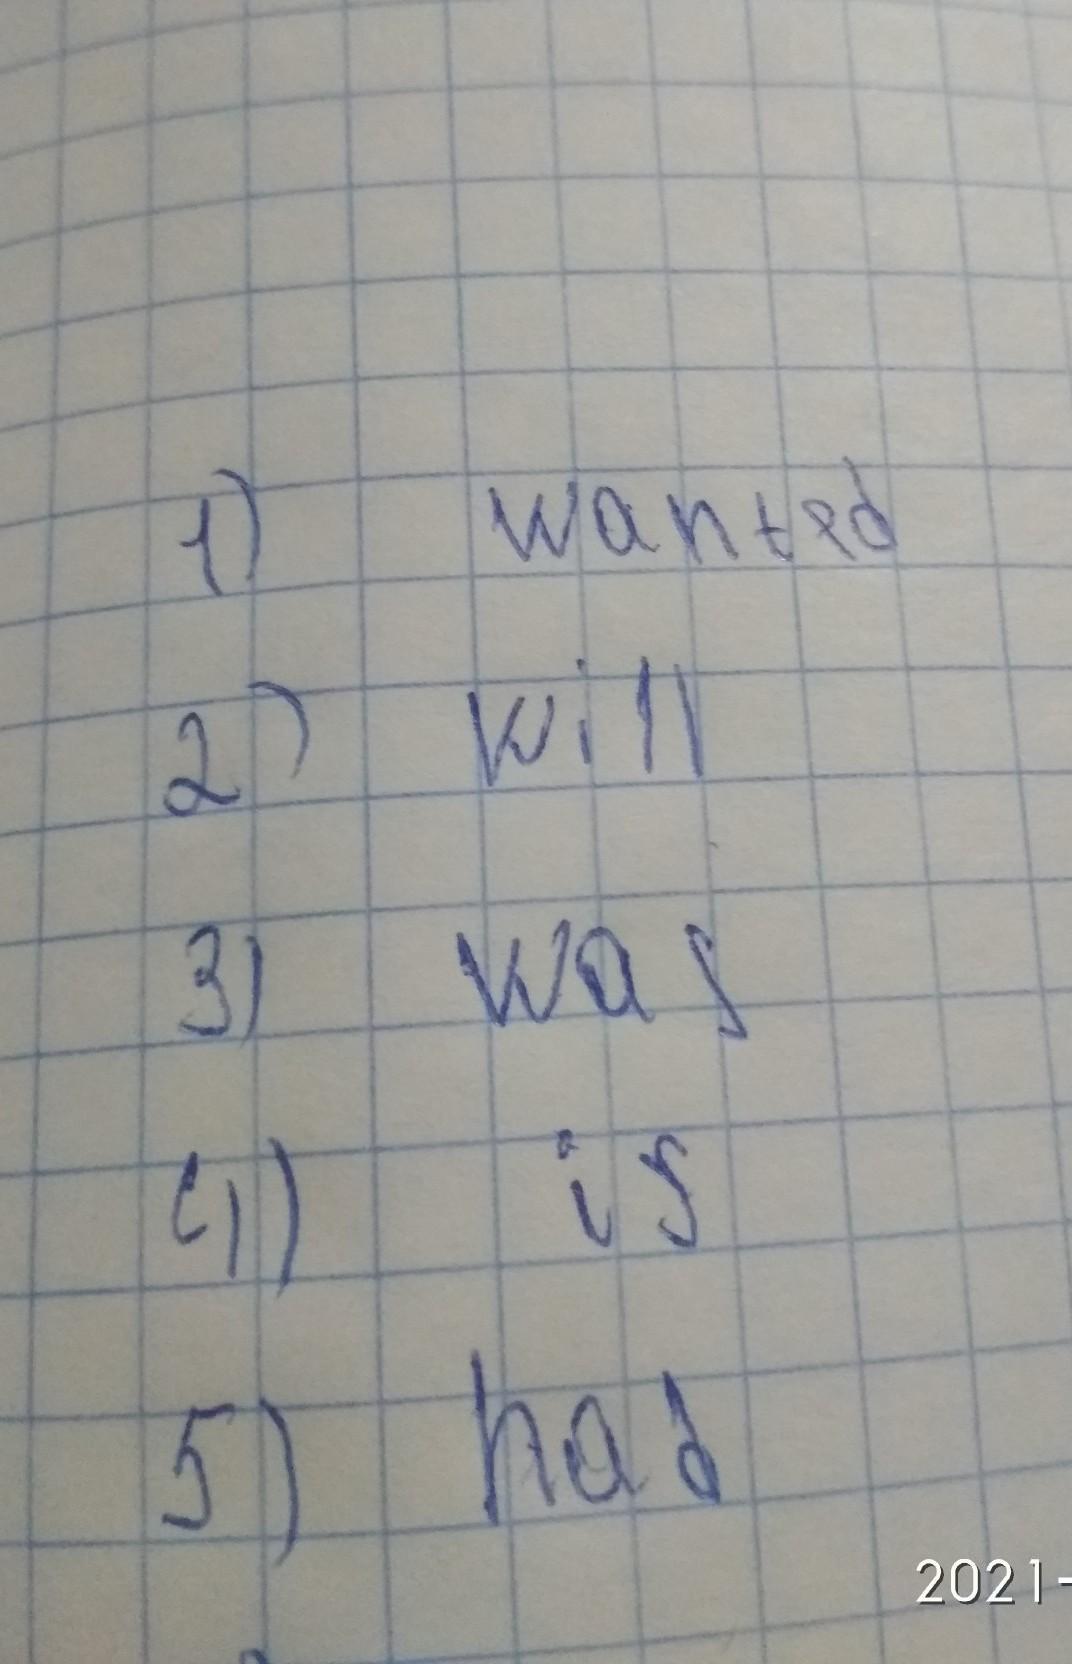 1) wanted
2) will
3) was
4) is
5) had
2021-